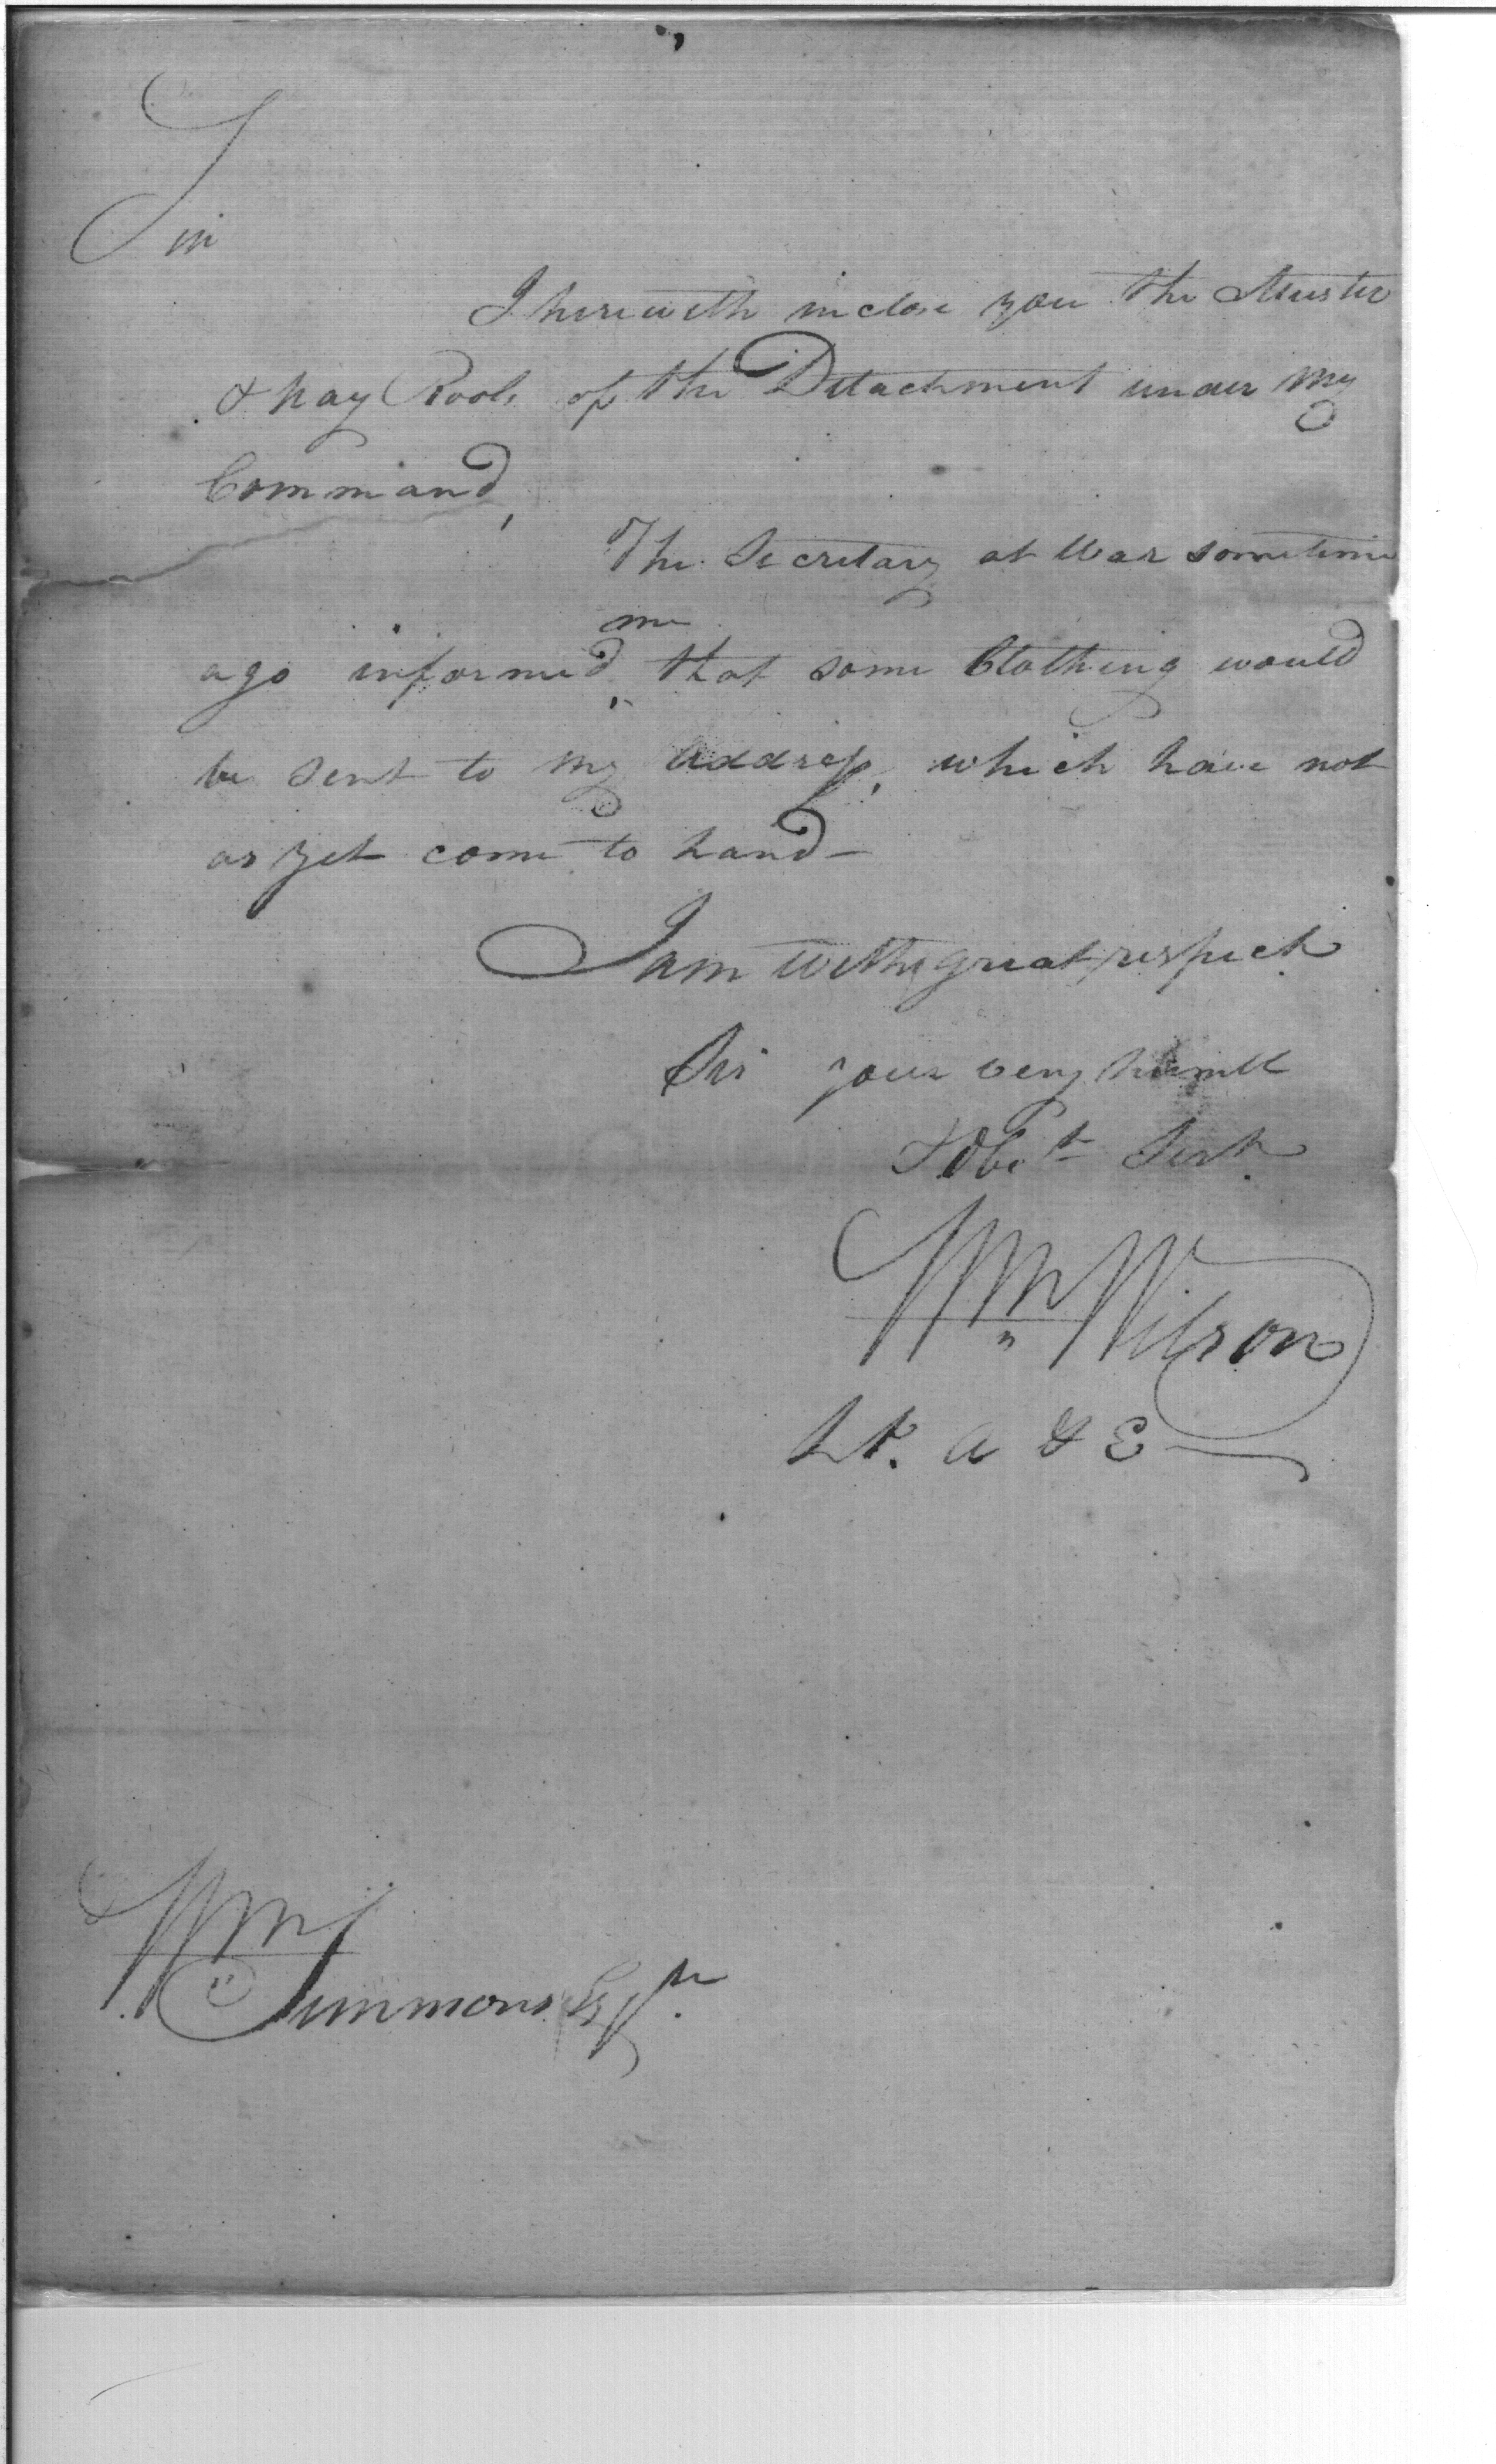 Sir
I herewith inclose you the Muster
& pay Rools of the Detachment under my
Command,
The Secretary at War sometime
me
ago informed, that some Clothing would
be sent to my address, which have not
as yet come to hand—
I am with great respect
Sir your very humbl
& Obt Servt
Wm Wilson
Lt. A & E
Wm
Simmons Esqr.